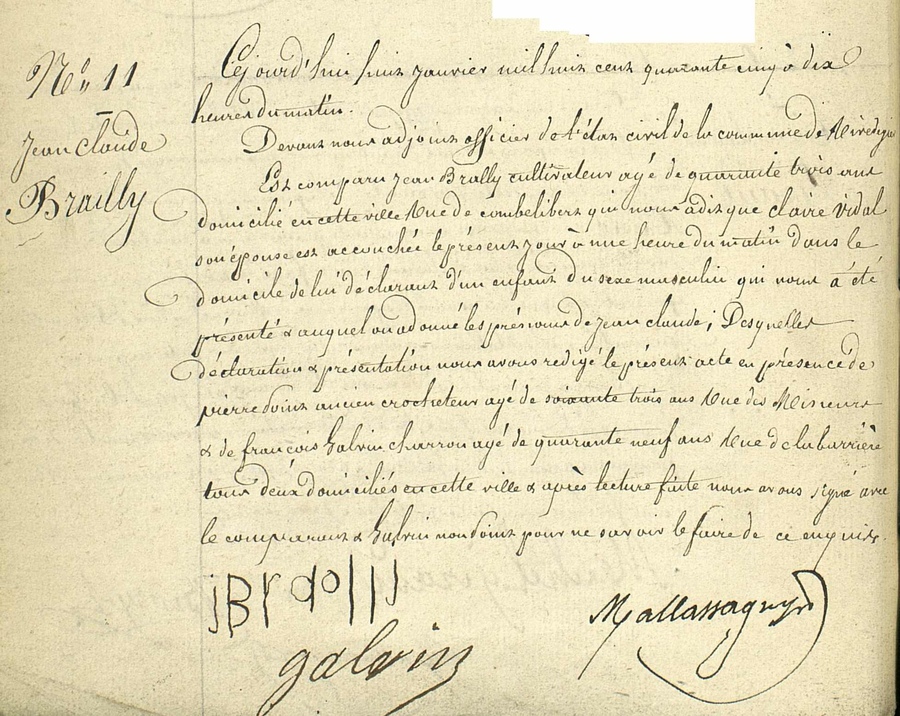 N° 11
Jean Claude
Brailly
Cejourd'hui huit janvier mil huit cent quarante cinq à dix
heures du matin.
Devant nous adjoint officier de l'état civil de la commune de
Est comparu Jean Brally cultivateur agé de quarante trois ans
domicilié en cette ville Rue de combelibert qui nous a dit que claire Vidal
son épouse est accouchée le présent jour à une heure du matin dans le
domicile de lui déclarant d'un enfant du sexe masculin qui nous a été
présenté & auquel on a donné les prénoms de jean claude ; Desquelles
déclaration & présentation nous avons redigé le présent acte en présence de
pierre doint ancien crocheteur agé de soixante trois ans Rue des Mineurs
& de françois Galvin charron agé de quarante neuf ans Rue de la barrière
tous deux domiciliés en cette ville & après lecture faite nous avons signé avec
le comparant & Galvin non doint pour ne savoir le faire de ce enquis.
galvin